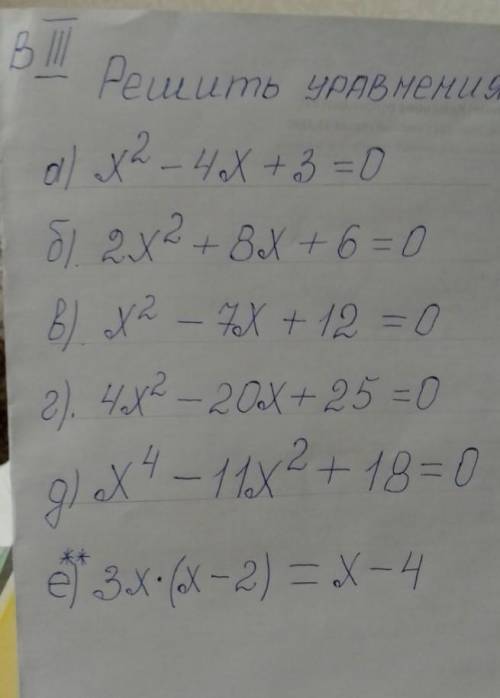 В III
Решить уравнения
а) x² - 4x + 3 = 0
б). 2x² + 8x + 6 = 0
в) x² - 7x + 12 = 0
г). 4x² - 20x + 25 = 0
д) x⁴ - 11x² + 18 = 0
е)** 3x·(x-2) = x - 4